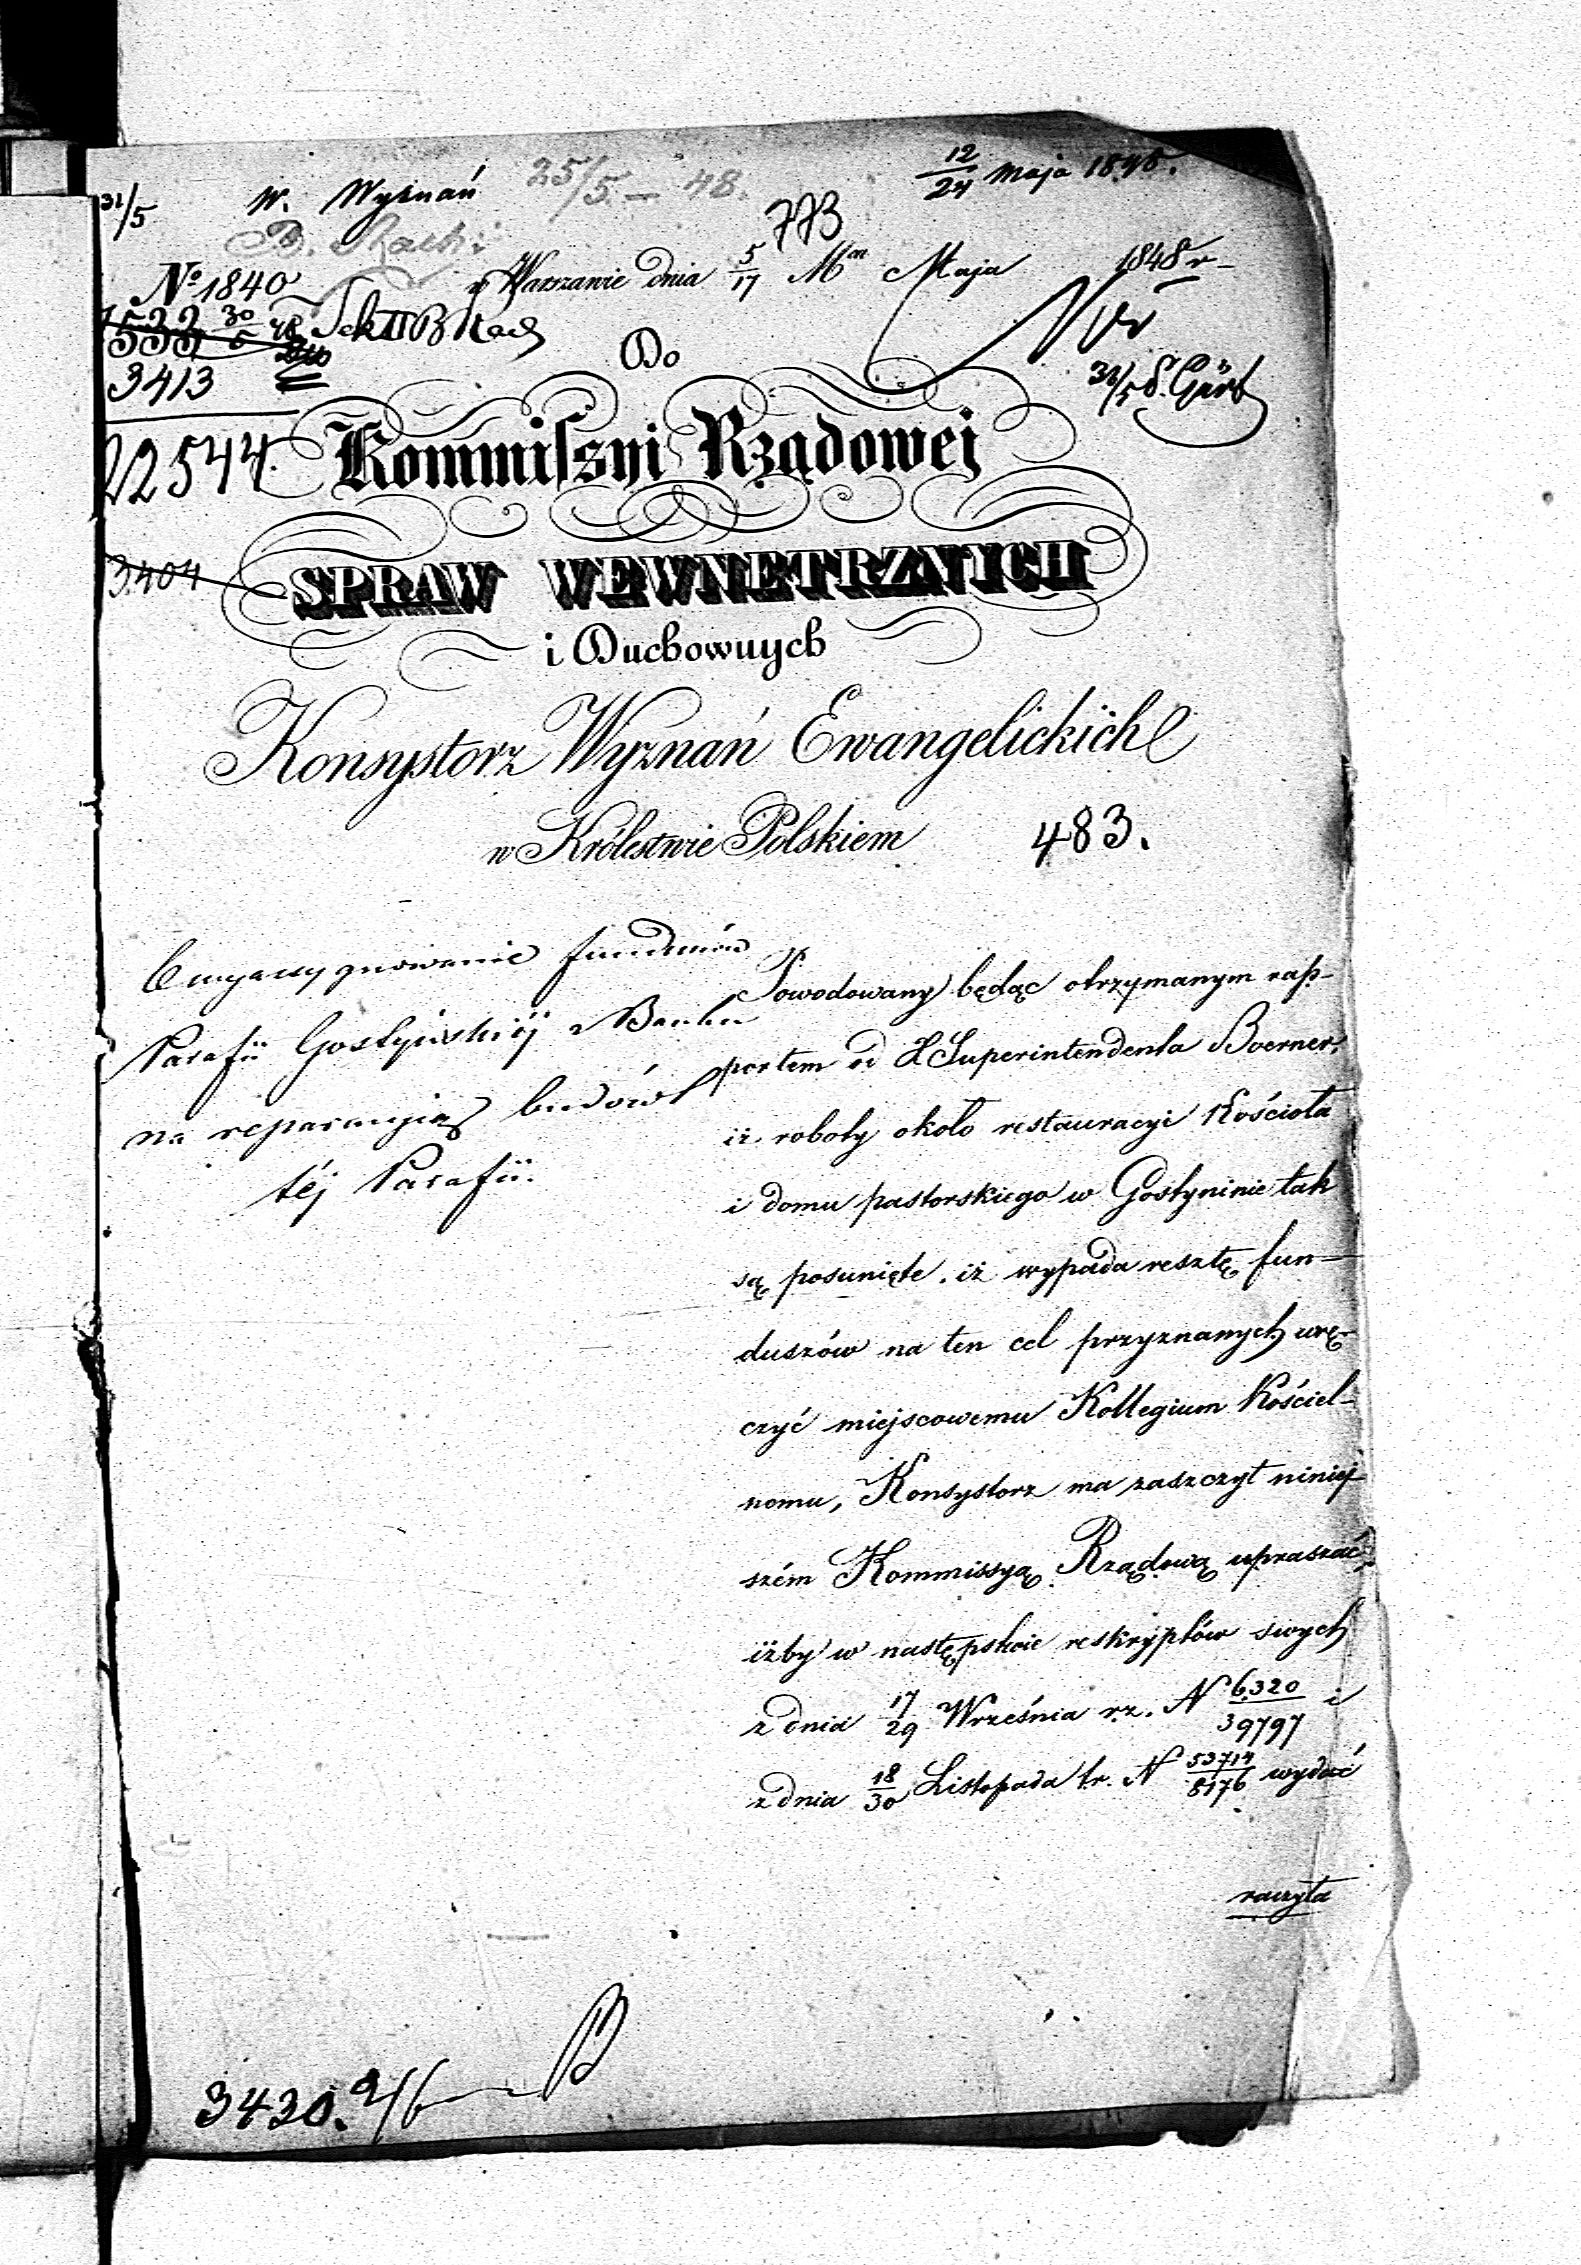 12/24 Maja 1848.
31/5 W. Wyznań 25/5 – 48.
773
No 1840 w Warszawie dnia 5/17 Mca Maja 1848 r
30/5 48
3413
Do
31/5
22544. Kommissyi Rządowej
3404 SPRAW WEWNETRZNYCH
i Duchownych
Konsystorz Wyznań Ewangelickich
w Królestwie Polskiem 483.
O wyassygnowanie funduszów
Parafii Gostyńskiéj z Banku
na reparacyię budowl
téj Parafii.
Powodowany będąc otrzymanym rap-
portem od Superintendenta Boerner,
iż roboty około restauracyi Kościoła
i domu pastorskiego w Gostyninie tak
są posunięte, iż wypada resztę fun-
duszów na ten cel przyznanych wrę-
czyć miejscowemu Kollegium Kościel-
nomu, Konsystorz ma zaszczyt niniej-
szém Kommissyą Rządową upraszać,
iżby w następstwie reskryptów swych
z dnia 17/29 Września r.z. N 6320/39797 i
z dnia 18/30 Listopada t.r. N 53714/8176 wydać
raczyła
3430. 2/6